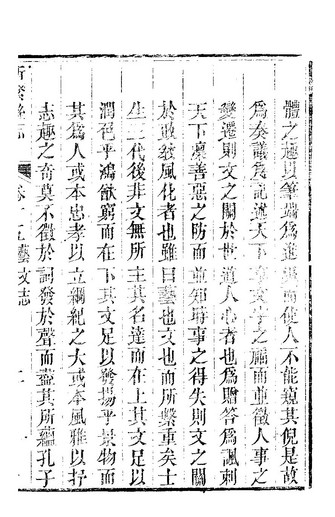 體之趣以筆端爲進退而使人不能窺其倪是故
爲奏議爲記述天下文字之關而並徵人事之
變遷則文之關於世道人心者也爲贈答爲諷刺
天下稟善惡之防而並知時事之得失則文之關
於政發風化者也雖曰藝也文也而所繫重矣士
生三代後非文無所主其名達而在上其文足以
潤色乎鴻猷窮而在下其文足以發揚乎景物而
其爲人或本忠孝以立綱紀之大或本風雅以抒
志趣之奇莫不徵於詞發於聲而盡其所蘊孔子
新繁縣志 卷十五藝文志 二